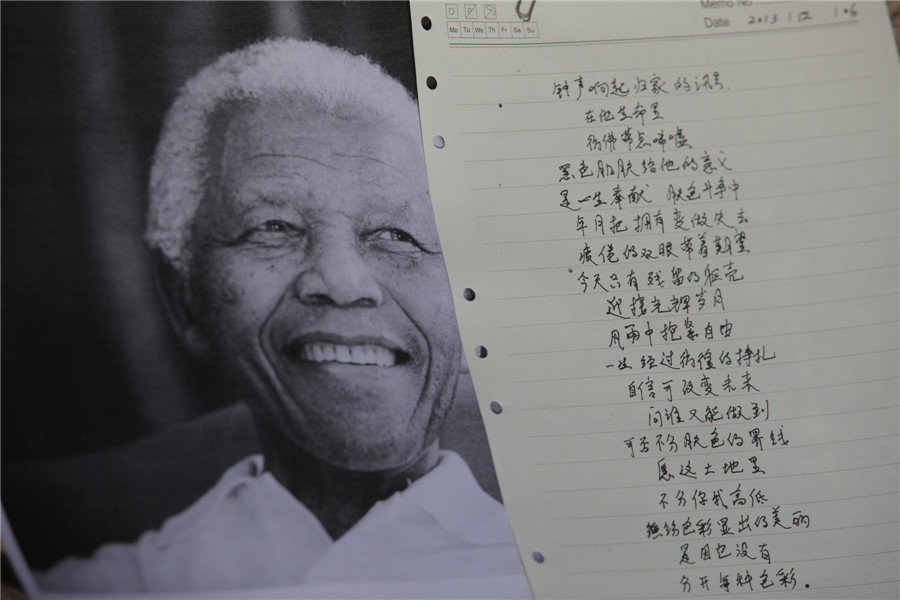 Memo No.
Mo Tu We Th Fr Sa Su
Date 2013 / 12 / 06
钟声响起归家的讯号
在他生命里
彷佛带点唏嘘
黑色肌肤给他的意义
是一生奉献 肤色斗争中
年月把拥有变做失去
疲倦的双眼带着期望
今天只有残留的躯壳
迎接光辉岁月
风雨中抱紧自由
一生经过彷徨的挣扎
自信可改变未来
问谁又能做到
可否不分肤色的界线
愿这土地里
不分你我高低
缤纷色彩显出的美丽
是因它没有
分开每种色彩。